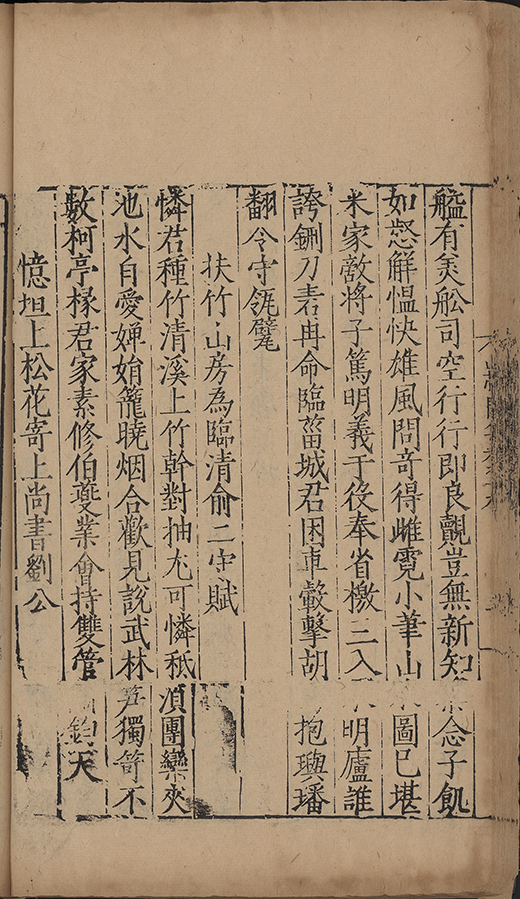 艦有美舩司空行行即良覿豈無新知念子飢
如惄解慍快雄風問奇得雌霓小筆山圖已堪
米家敵將子篤明義于役奉省檄三入明廬誰
誇鉶刀若再命臨菑城君困車轂擊胡抱璵璠
翻令守瓴甓
扶竹山房為臨清俞二守賦
憐君種竹清溪上竹幹對抽尢可憐秪須團欒夾
池水自愛嬋娟籠曉烟合歡見說武林笋獨笴不
數柯亭椽君家素修伯夔業會持雙管鈞天
憶垣上松花寄上尚書劉公